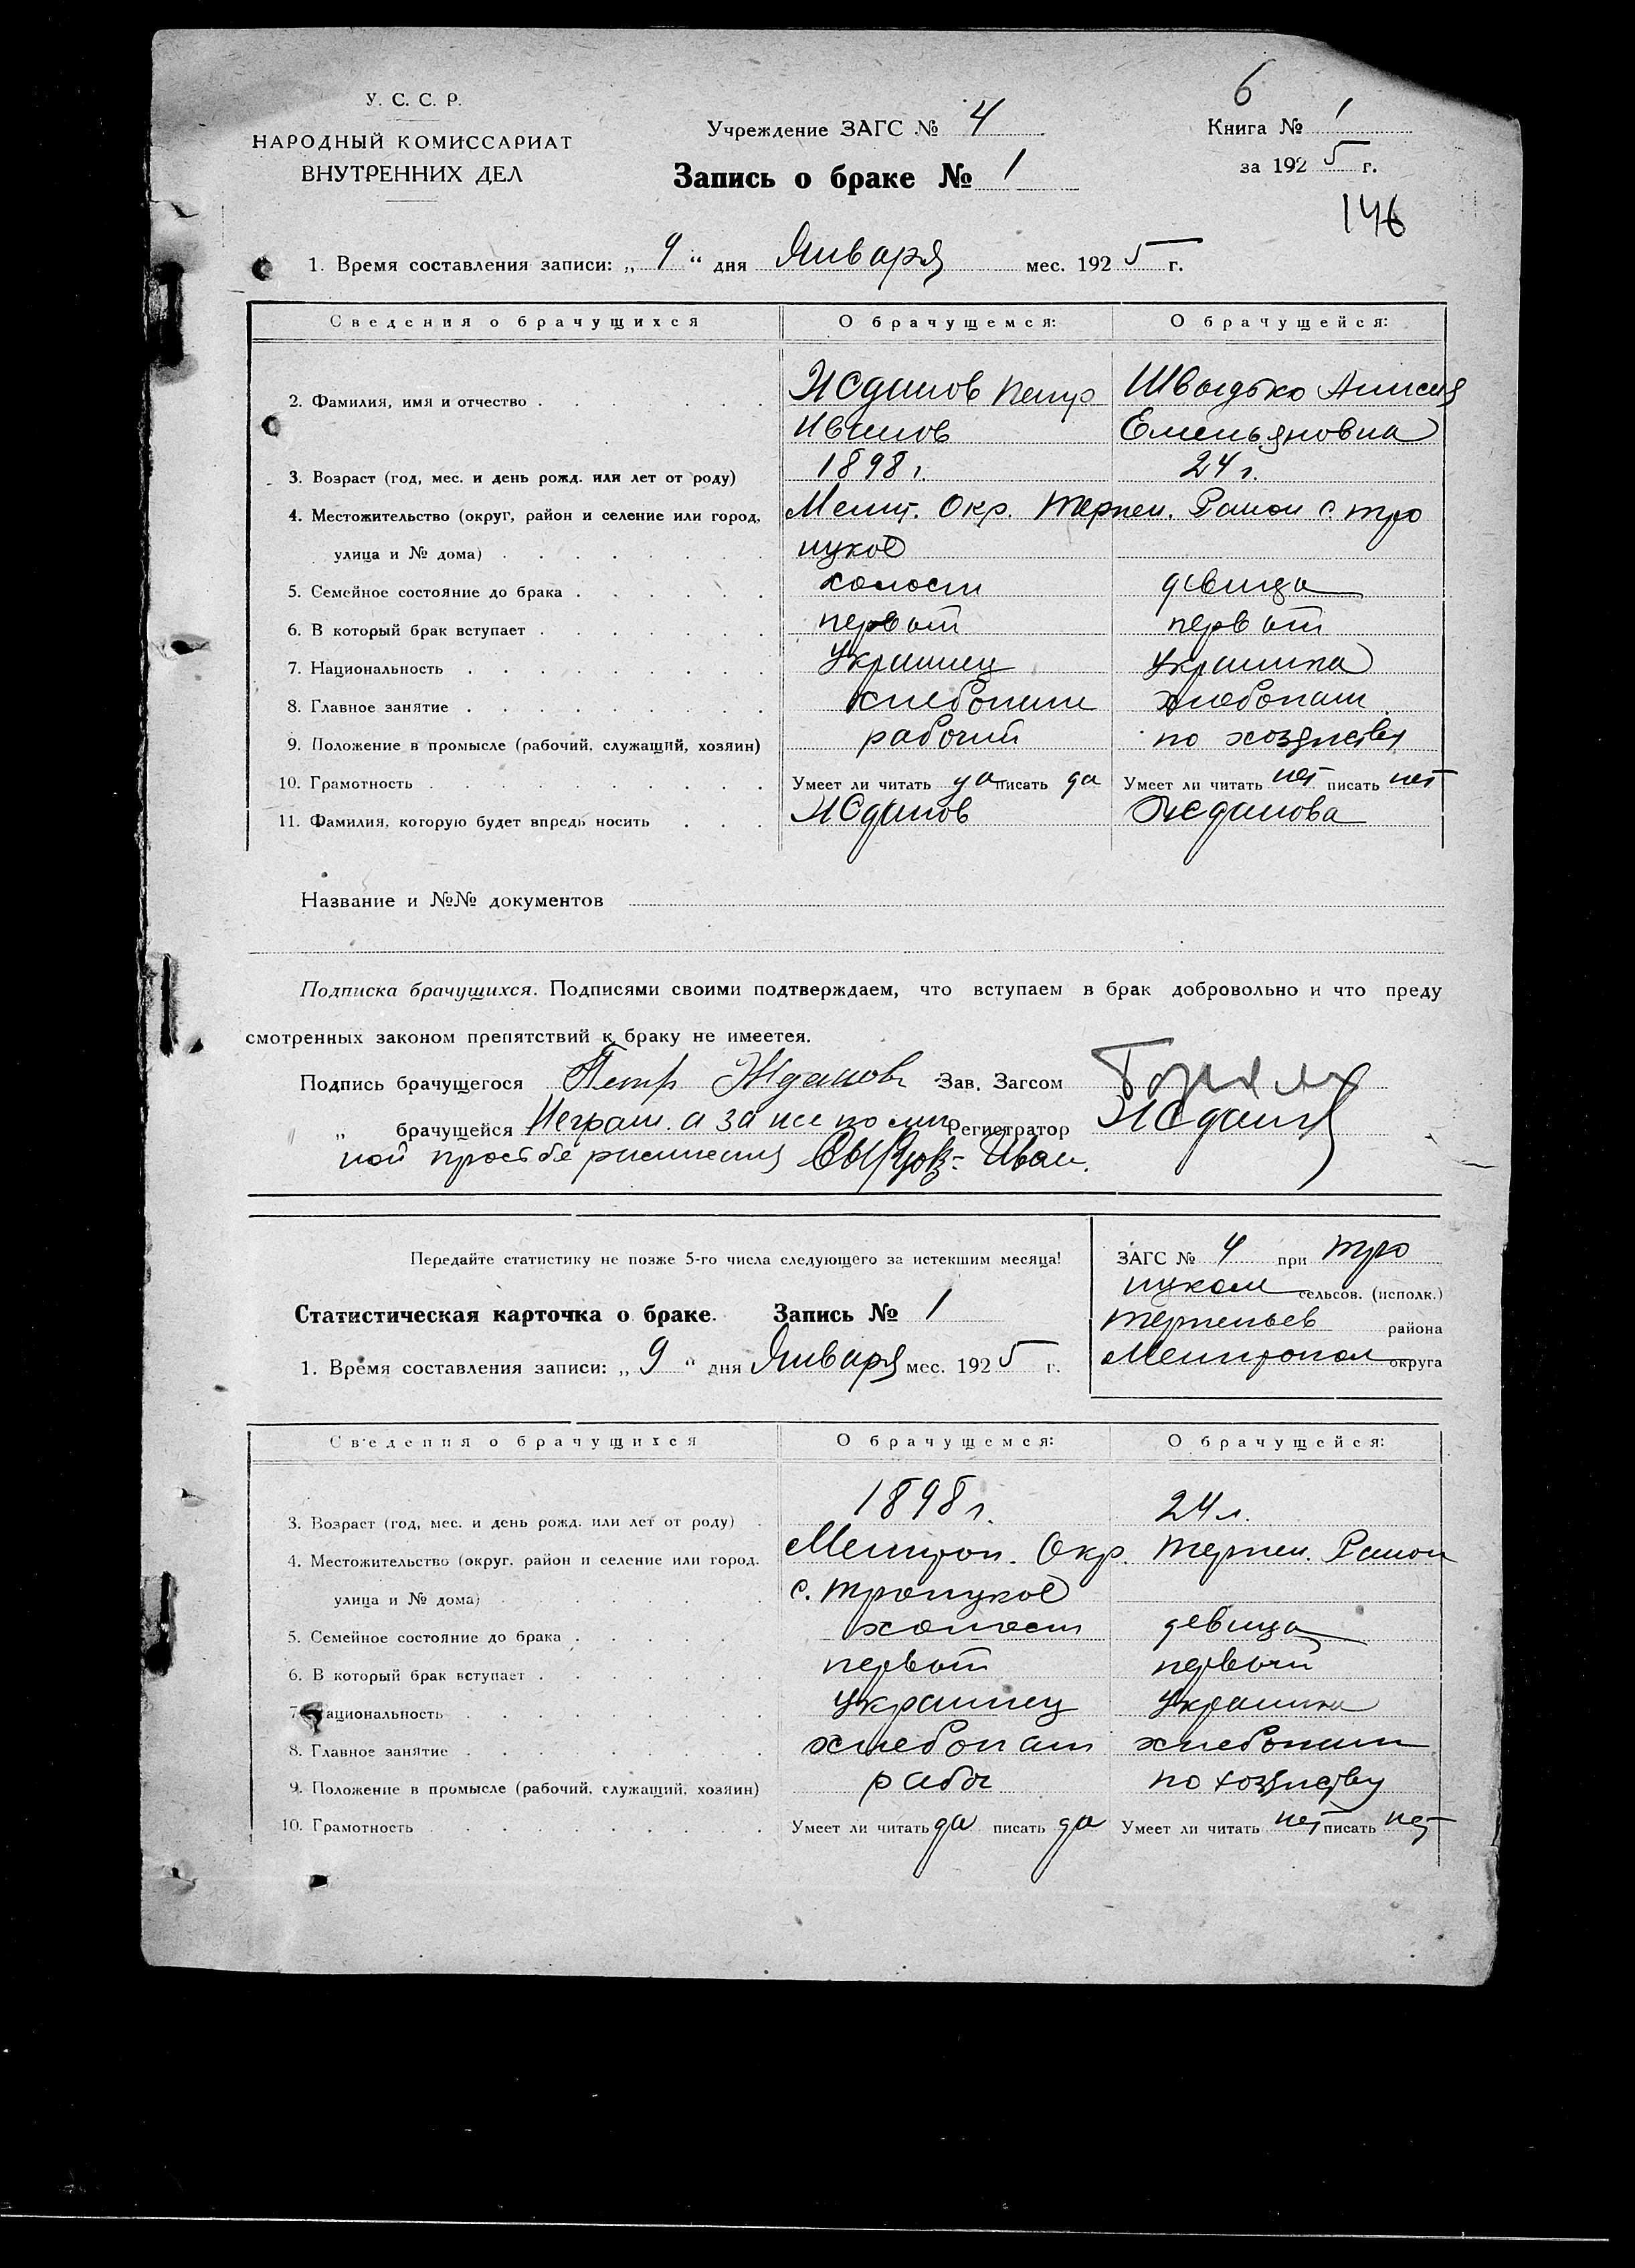 У. С. С. Р.
НАРОДНЫЙ КОМИССАРИАТ
ВНУТРЕННИХ ДЕЛ
Учреждение ЗАГС № 4
Запись о браке № 1
6
Книга № 1
за 1925 г.
146
1. Время составления записи: „ 9 “ дня Января мес. 1925 г.
Сведения о брачущихся О брачущемся: О брачущейся:
2. Фамилия, имя и отчество Жданов Петр Швыдько Анисия
Иванов Емельяновна
3. Возраст (год, мес. и день рожд. или лет от роду) 1898 г. 24 г.
4. Местожительство (округ, район и селение или город, Мелит. Окр. Терпен. Район с. тро
улица и № дома) ицкое
5. Семейное состояние до брака холост девица
6. В который брак вступает первый первый
7. Национальность Украинец Украинка
8. Главное занятие хлебопаш хлебопаш
9. Положение в промысле (рабочий, служащий, хозяин) рабочий по хозяйству
10. Грамотность Умеет ли читать да писать да Умеет ли читать нет писать нет
11. Фамилия, которую будет впредь носить Жданов Жданова
Название и №№ документов
Подписка брачущихся. Подписями своими подтверждаем, что вступаем в брак добровольно и что преду
смотренных законом препятствий к браку не имеетея.
Подпись брачущегося Петр Жданов Зав. Загсом
„ брачущейся Неграм. а за нее по лич Регистратор Жданов
ной просьбе Иван.
Передайте статистику не позже 5-го числа следующего за истекшим месяца!
ЗАГС № 4 при тро
ицком сельсов. (исполк.)
Терпеньев района
Мелитопол округа
Статистическая карточка о браке. Запись № 1
1. Время составления записи: „ 9 “ дня Января мес. 1925 г.
Сведения о брачущихся О брачущемся: О брачущейся:
3. Возраст (год, мес. и день рожд. или лет от роду) 1898 г. 24 л.
4. Местожительство (округ, район и селение или город, Мелитоп. Окр. Терпен. Район
улица и № дома) с. троицкое
5. Семейное состояние до брака холост девица
6. В который брак вступает первый первый
7. Национальность Украинец Украинка
8. Главное занятие хлебопаш хлебопаш
9. Положение в промысле (рабочий, служащий, хозяин) рабоч по хозяйству
10. Грамотность Умеет ли читать да писать да Умеет ли читать нет писать нет